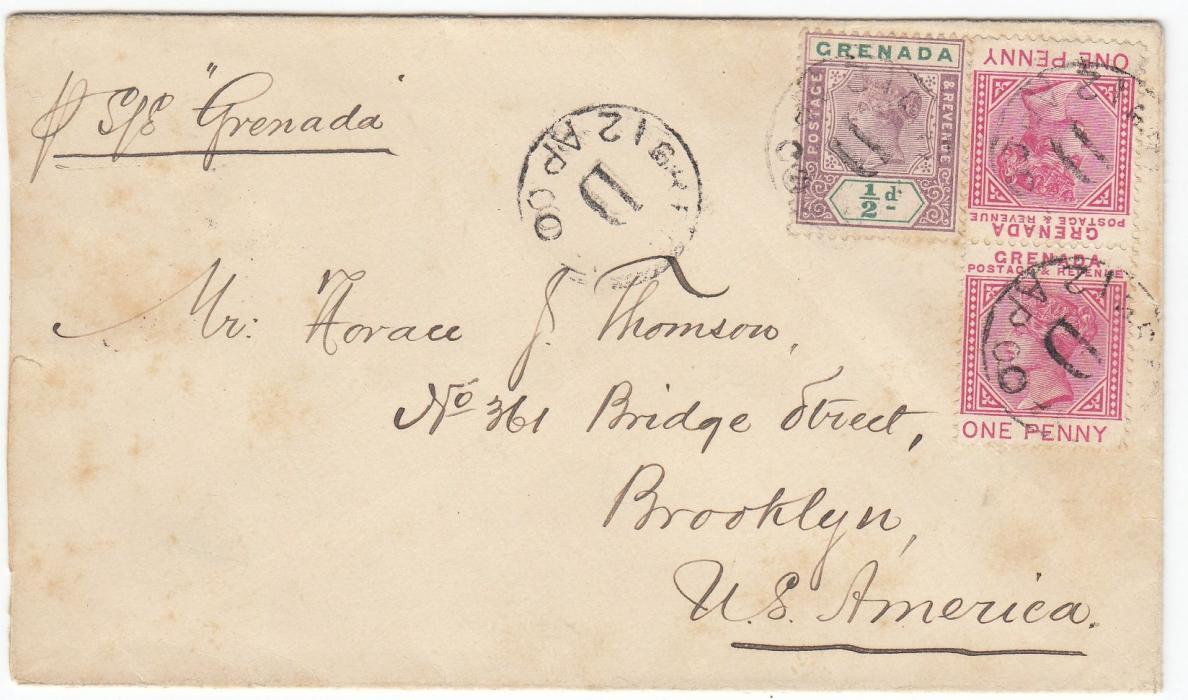 p S/S "Grenada"
GRENADA
POSTAGE & REVENUE
1/2 d.
ONE PENNY
GRENADA
POSTAGE & REVENUE
GRENADA
POSTAGE & REVENUE
ONE PENNY
12 AP 00
D
12 AP 00
D
Mr: Horace J. Thomson,
No 361 Bridge Street,
Brooklyn,
U.S. America.